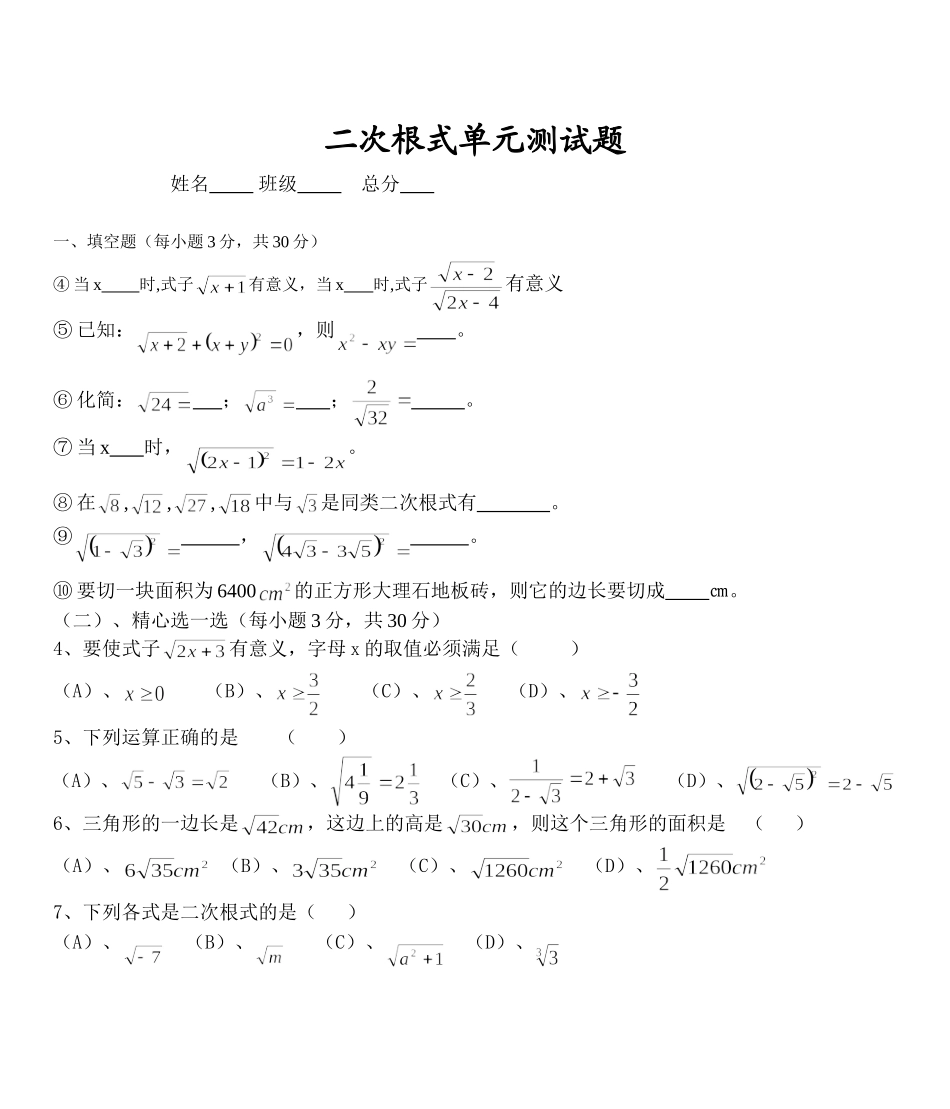 二次根式单元测试题
姓名____ 班级____ 总分____
一、填空题（每小题 3 分，共 30 分）
④ 当 x____时,式子 √(x+1) 有意义，当 x___时,式子 √(x−2)/√(2x−4) 有意义
⑤ 已知：√(x+2)+(x+y)²=0，则 x²−xy=____。
⑥ 化简：√24=___；√a³=___；2/√32=_____。
⑦ 当 x___时，√(2x−1)²=1−2x。
⑧ 在√8,√12,√27,√18中与√3是同类二次根式有_______。
⑨ √(1−√3)²=______，√(4√3−3√5)²=______。
⑩ 要切一块面积为 6400cm²的正方形大理石地板砖，则它的边长要切成____㎝。
（二）、精心选一选（每小题 3 分，共 30 分）
4、要使式子√(2x+3)有意义，字母 x 的取值必须满足（ ）
（A）、x≥0 （B）、x≥3/2 （C）、x≥2/3 （D）、x≥-3/2
5、下列运算正确的是 （ ）
（A）、√5−√3=√2 （B）、√(4 1/9)=2 1/3 （C）、1/(2−√3)=2+√3 （D）、√(2−√5)²=2−√5
6、三角形的一边长是√42cm，这边上的高是√30cm，则这个三角形的面积是 （ ）
（A）、6√35cm² （B）、3√35cm² （C）、√1260cm² （D）、1/2√1260cm²
7、下列各式是二次根式的是（ ）
（A）、√−7 （B）、√m （C）、√(a²+1) （D）、³√3